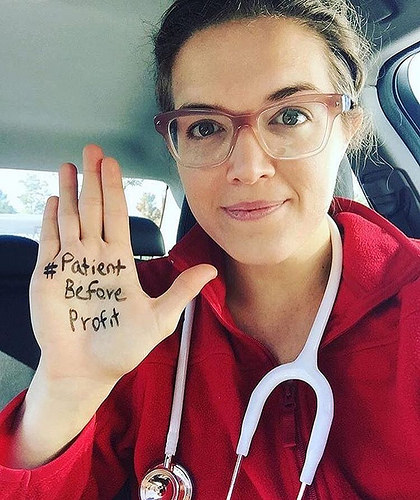 #Patient
Before
Profit